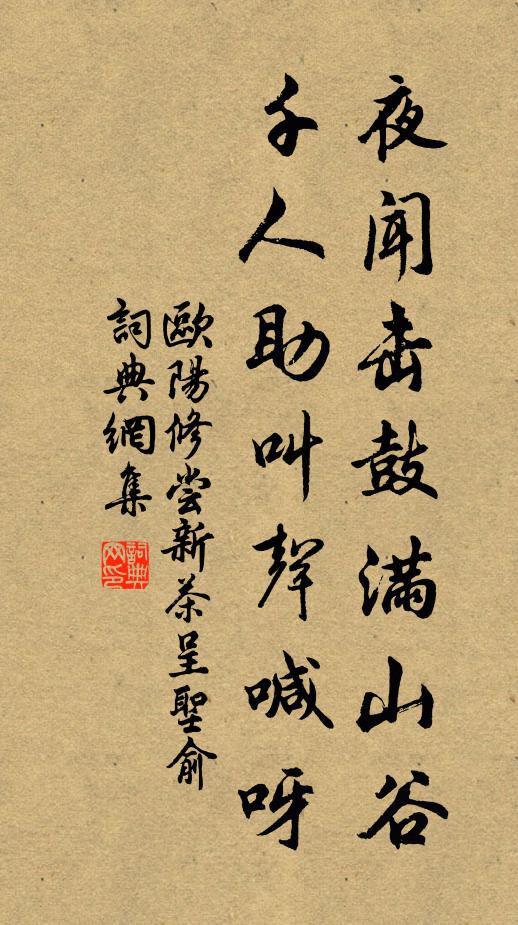 夜闻击鼓满山谷
千人助叫声喊呀
歐陽修尝新茶呈聖俞
詞典網集
詞典网印